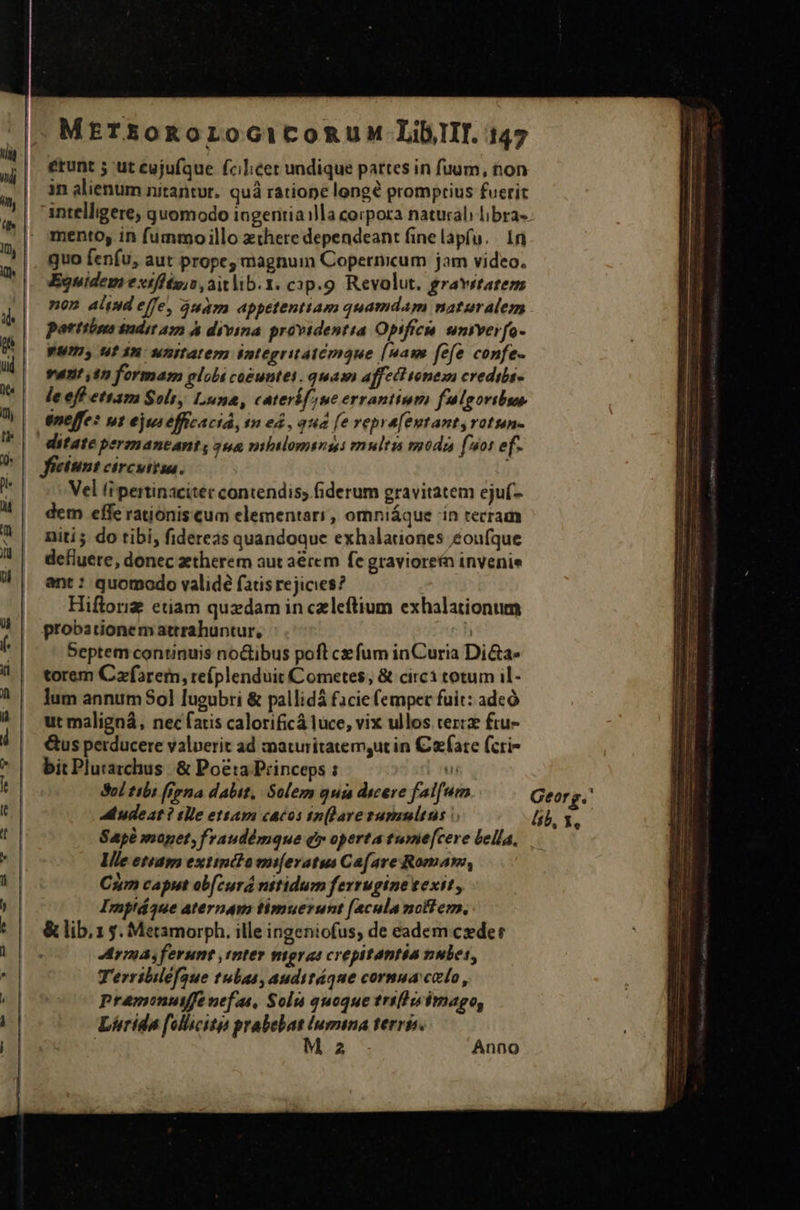 METEOROLOGICORUM Lib. III. 147
erunt ; ut cujuſque ſcilicet undique partes in ſuum, non
in alienum nitantur. quâ ratione longè promptius fuerit
intelligere, quomodo ingentia illa corpora naturali libra-
mento, in ſummo illo æthere dependeant ſine lapſu. In
quo ſenſu, aut prope, magnum Copernicum jam video.
Equidem existimo, ait lib. 1. cap. 9 Revolut. gravitatem
non aliud eſſe, quàm appetentiam quamdam naturalem
partibus inditam à divina providentia Opificis univerſo-
rum, ut in unitatem integritatémque ſuam ſeſe confe-
rant, in formam globi coëuntes. quam affectionem credibi-
le eſt etiam Soli, Lunæ, cateríſque errantium fulgoribus
ineſſe: ut ejus efficaciâ, in eâ, quâ ſe repræſentant, rotun-
ditate permaneant, quæ nihilominus multis modis ſuos ef-
ficiunt circuitus.
Vel ſi pertinaciter contendis, ſiderum gravitatem ejuſ-
dem eſſe rationis cum elementari, omniáque in terram
niti; do tibi, ſidereas quandoque exhalationes eouſque
defluere, donec ætherem aut aërem ſe graviorem invenie
ant : quomodo validè ſatis rejicies?
Hiſtoriæ etiam quædam in cæleſtium exhalationum
probationem attrahuntur.
Septem continuis noctibus poſt cæſum in Curia Dicta-
torem Cæſarem, reſplenduit Cometes, & circà totum il-
lum annum Sol lugubri & pallidâ facie ſemper fuit: adeò
ut malignâ, nec ſatis calorificâ luce, vix ullos terræ fru-
ctus perducere valuerit ad maturitatem, ut in Cæſare ſcri-
bit Plutarchus & Poëta Princeps :
Sol tibi ſigna dabit, Solem quis dicere falſum
Georg.
Audeat? ille etiam cæcos inſtare tumultus
lib. 1.
Sæpè monet, fraudémque & operta tumeſcere bella.
Ille etiam extincto miſeratus Cæſare Romam,
Cùm caput obſcurâ nitidum ferrugine texit,
Impiáque æternam timuerunt ſæcula noctem.
& lib. 15. Metamorph. ille ingenioſus, de eadem cæde :
Arma, ferunt, inter nigras crepitantia nubes,
Terribiléſque tubas, auditáque cornua cælo,
Præmonuiſſe nefas, Solis quoque triſtis imago,
Lurida ſollicitis præbebat lumina terris.
M 2 Anno